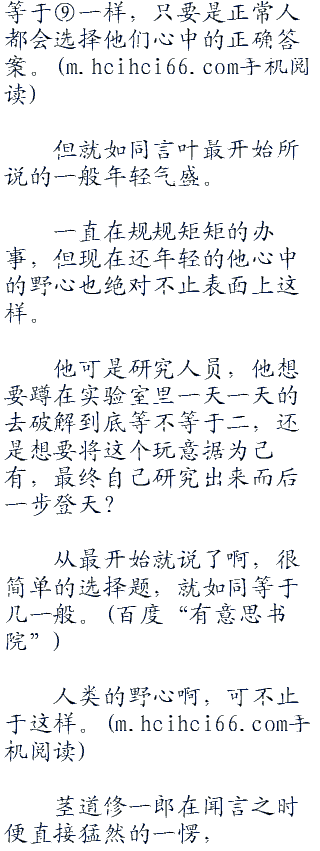 等于⑨一样，只要是正常人
都会选择他们心中的正确答
案。(m.hcihci66.com手机阅
读)
但就如同言叶最开始所
说的一般年轻气盛。
一直在规规矩矩的办
事，但现在还年轻的他心中
的野心也绝对不止表面上这
样。
他可是研究人员，他想
要蹲在实验室里一天一天的
去破解到底等不等于二，还
是想要将这个玩意据为己
有，最终自己研究出来而后
一步登天？
从最开始就说了啊，很
简单的选择题，就如同等于
几一般。(百度“有意思书
院”)
人类的野心啊，可不止
于这样。(m.hcihci66.com手
机阅读)
茎道修一郎在闻言之时
便直接猛然的一愣，